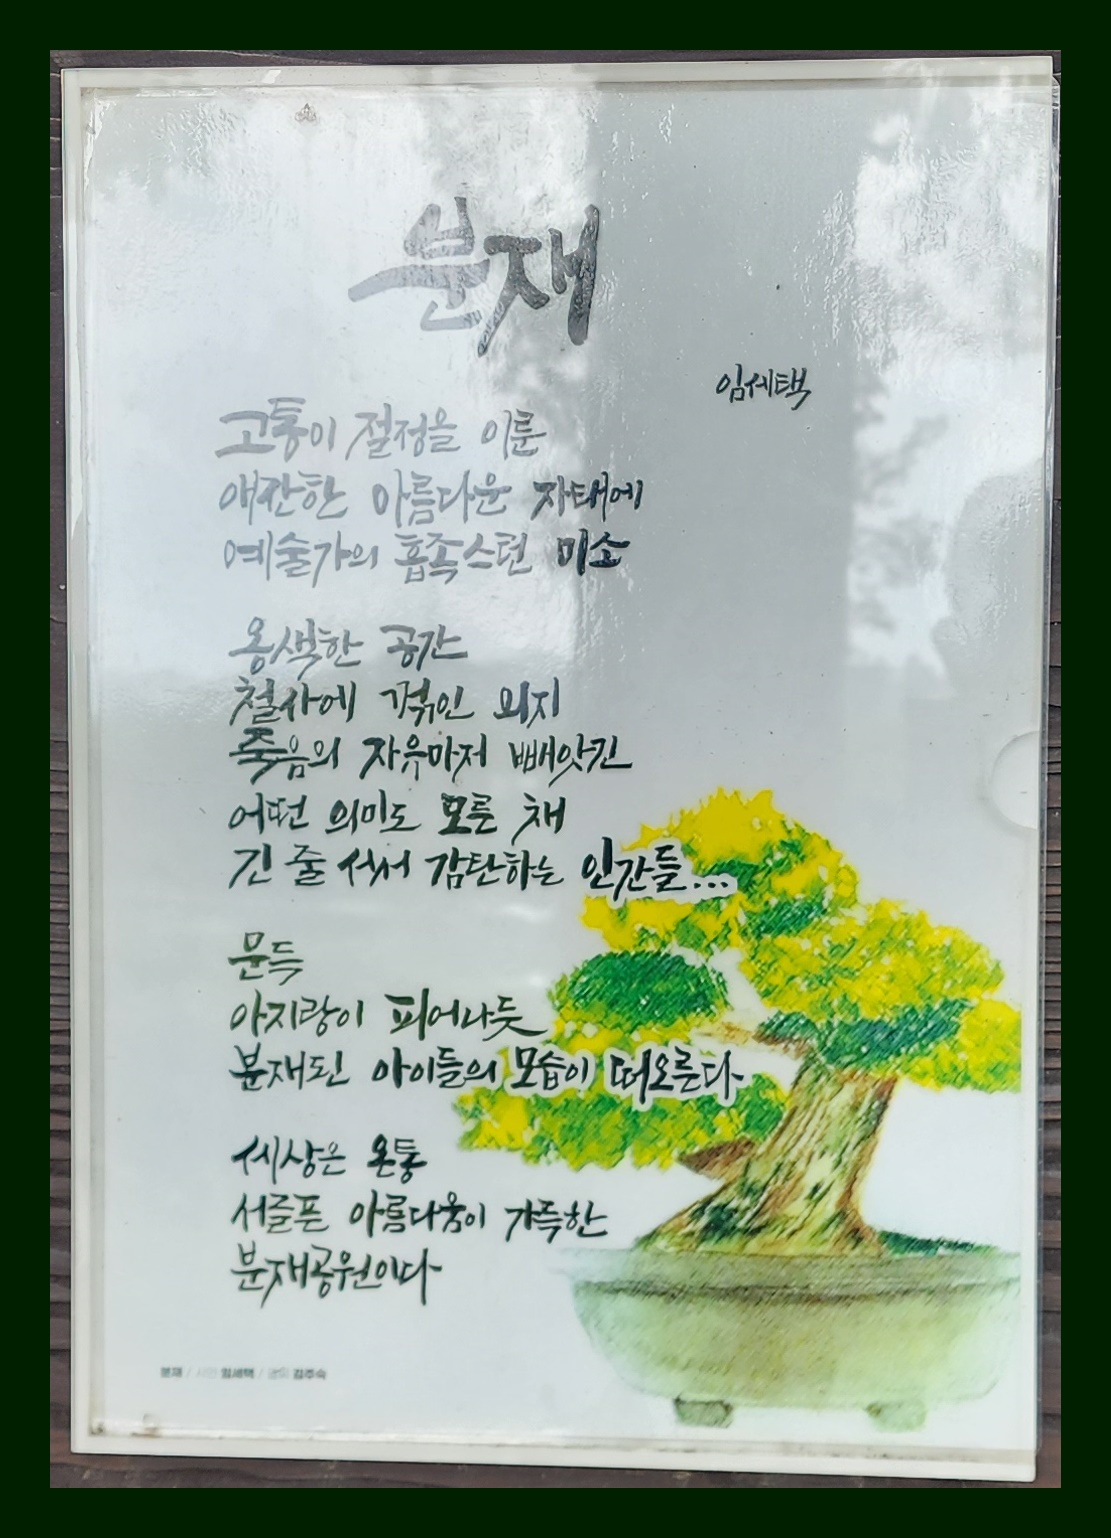 분재
임세택
고통이 절정을 이룬
애잔한 아름다운 자태에
예술가의 흡족스런 미소
옹색한 공간
철사에 꺾인 의지
죽음의 자유마저 빼앗긴
어떤 의미도 모른 채
긴 줄 서서 감탄하는 인간들...
문득
아지랑이 피어나듯
분재된 아이들의 모습이 떠오른다
세상은 온통
서글픈 아름다움이 가득한
분재공원이다
분재 / 시인 임세택 / 김주숙